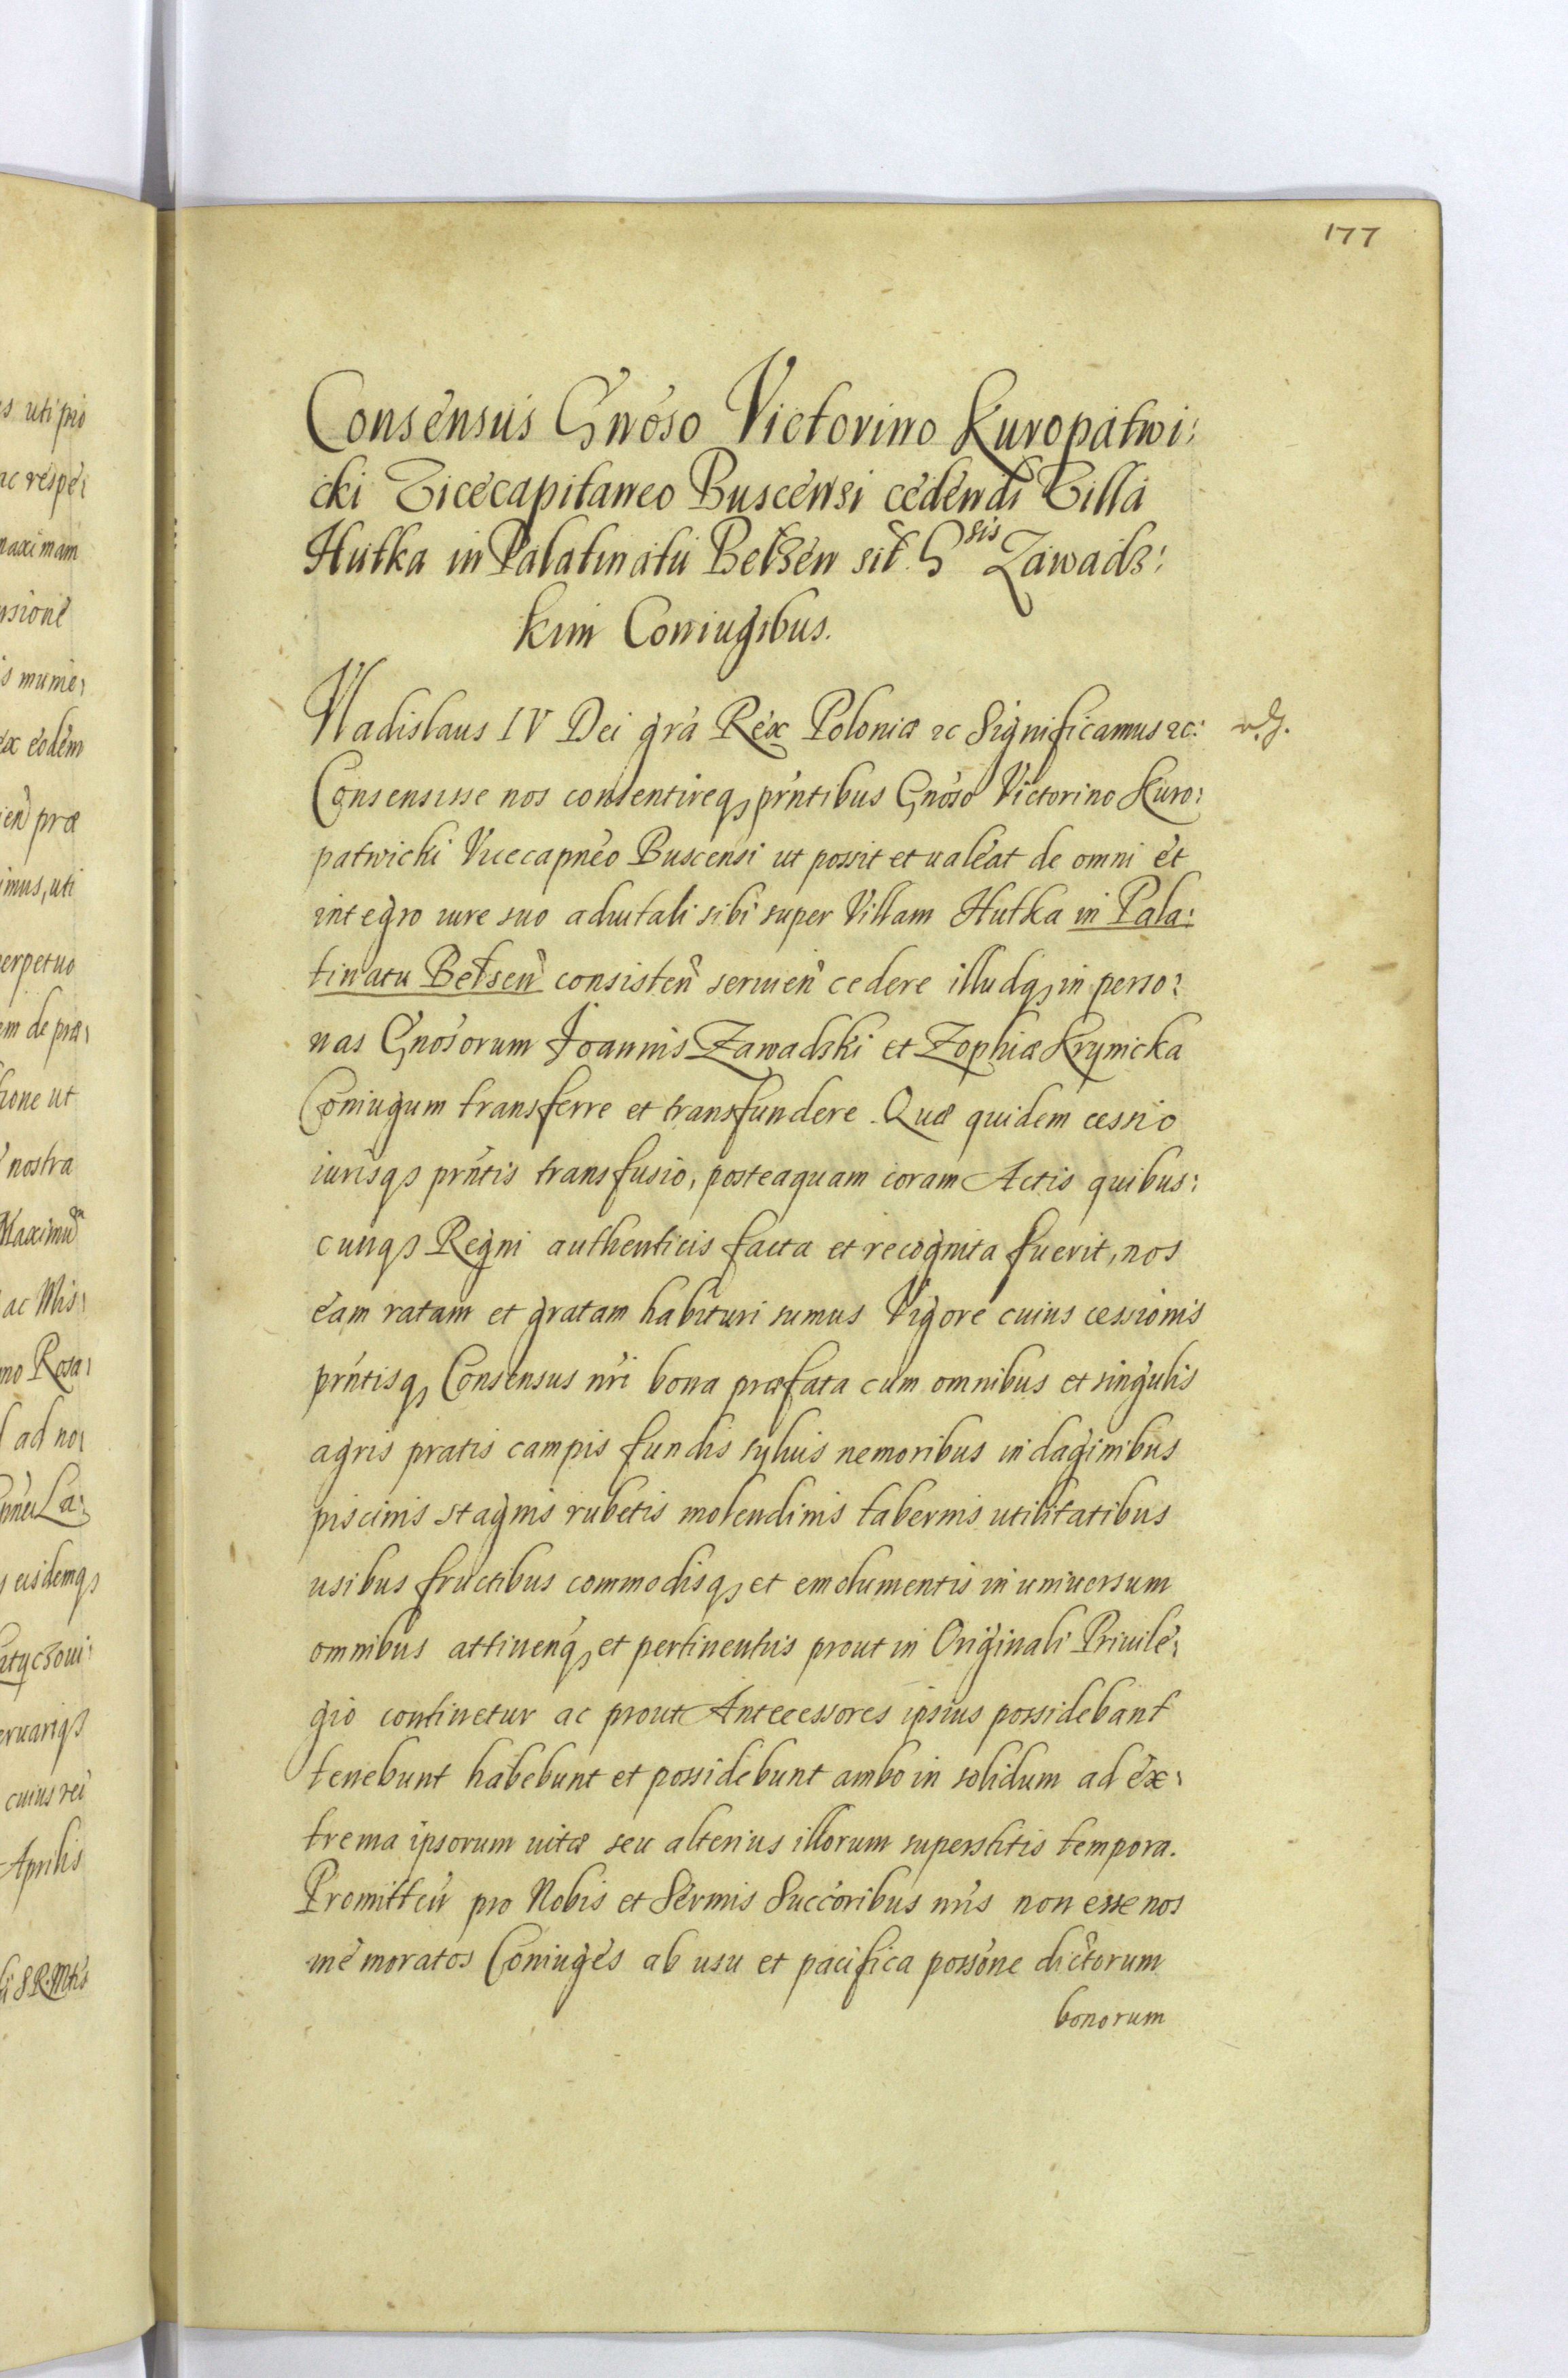 177
Consensus Gnoso Victorino Kuropatwi:
cki Vicecapitaneo Buscensi cedendi Villa
Hutka in Palatinatu Belzen sit. G^sis Zawadz:
kim Coniugibus.
Vladislaus IV Dei gra Rex Poloniæ &c Significamus &c:
Consensisse nos consentireq, prntibus Gnoso Victorino Kuro:
patwicki Vicecapneo Buscensi ut possit et ualeat de omni et
integro iure suo aduitali sibi super Villam Hutka in Pala:
tinatu Belsen consisten seruien cedere illudq, in perso:
nas Gnosorum Joannis Zawadski et Zophiæ Krynicka
Coniugum transferre et transfundere. Quæ quidem cessio
iurisq, prntis transfusio, posteaquam coram Actis quibus:
cunq, Regni authenticis facta et recognita fuerit, nos
eam ratam et gratam habituri sumus Vigore cuius cessionis
prntisq, Consensus nri bona præfata cum omnibus et singulis
agris pratis campis fundis syluis nemoribus indaginibus
piscinis stagnis rubetis molendinis tabernis utilitatibus
usibus fructibus commodisq, et emolumentis in uniuersum
omnibus attinenq, et pertinentiis prout in Originali Priuile:
gio continetur ac prout Antecessores ipsius possidebant
tenebunt habebunt et possidebunt ambo in solidum ad ex:
trema ipsorum uitæ seu alterius illorum superstitis tempora.
Promitten pro Nobis et Sermis Succoribus nris non esse nos
memoratos Coniuges ab usu et pacifica possone dictorum
bonorum
s uti pro
ac respe:
maximam
nsione
is mume:
ex eodem
ien præ
imus, uti
perpetuo
em de præ:
tione ut
nostra
Maximu
ac Mis:
no Rosa:
ad no:
La:
eisdemq,
eruariq,
cuius rei
Aprilis
S R Mtis